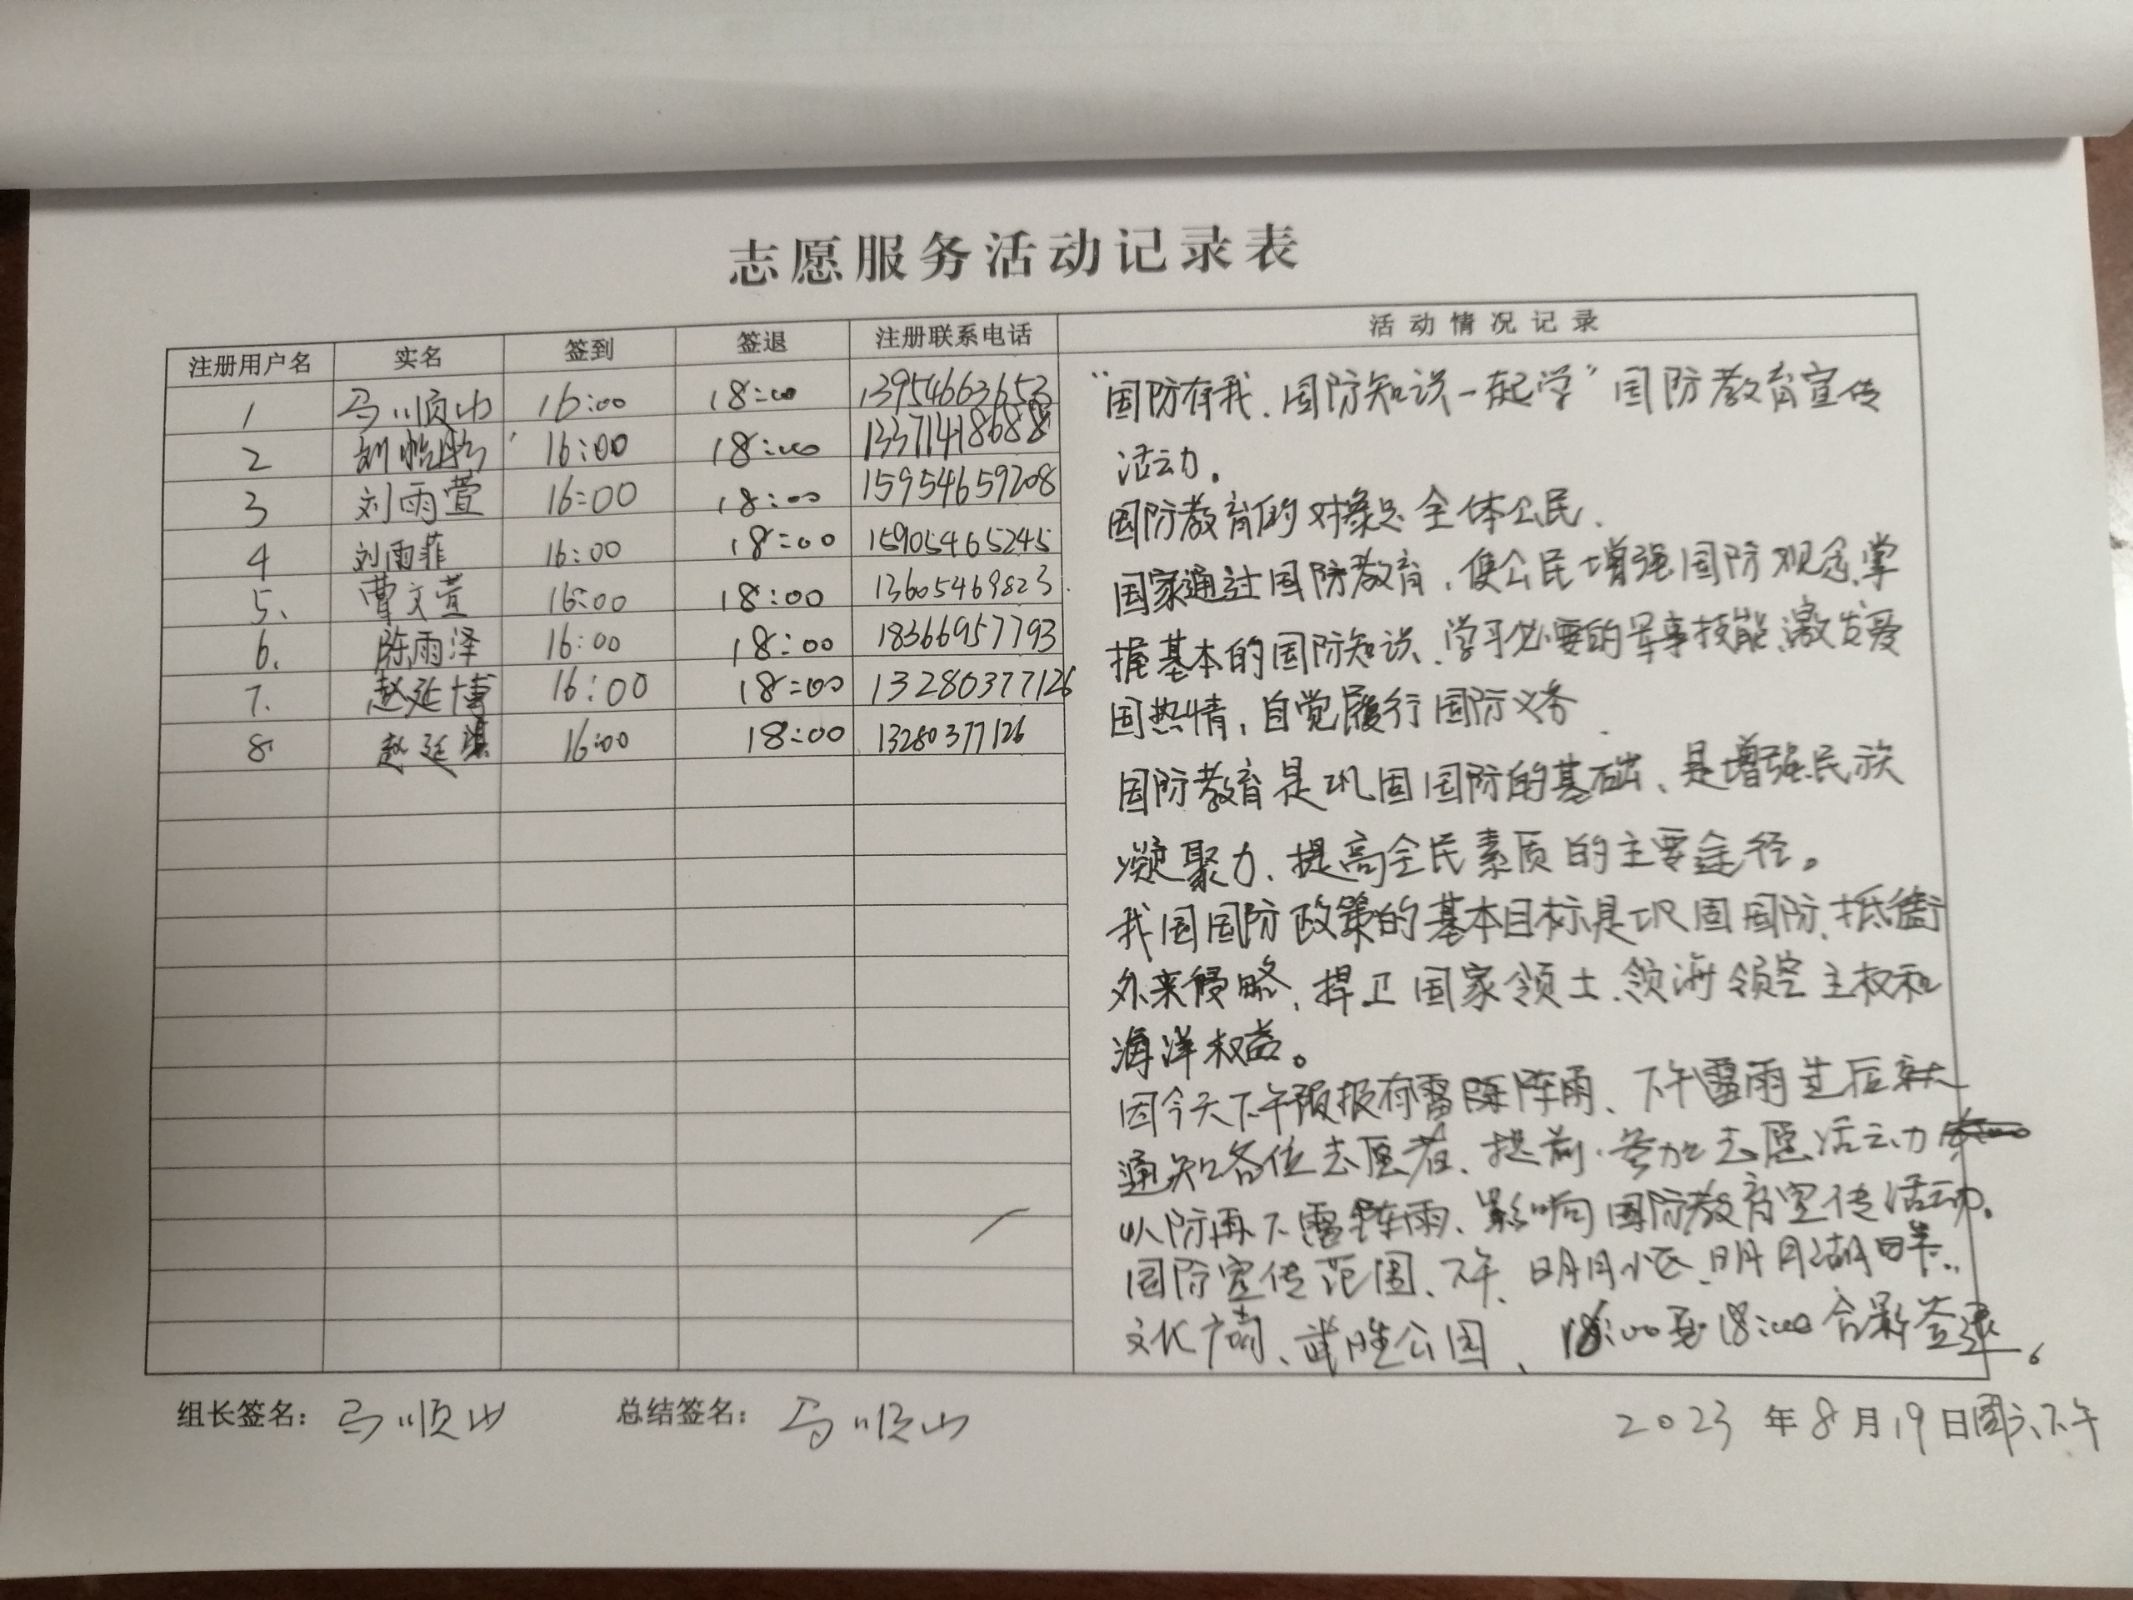 志愿服务活动记录表
注册用户名 实名 签到 签退 注册联系电话 活动情况记录
1 马顺山 16:00 18:00 13954663653
2 刘 16:00 18:00 13371418688
3 刘雨萱 16:00 18:00 15954659208
4 刘雨菲 16:00 18:00 15905465245
5. 曹文萱 16:00 18:00 13605469823
6. 陈雨泽 16:00 18:00 18366957793
7. 赵延博 16:00 18:00 13280377126
8 赵延 16:00 18:00 13280377126
“国防有我、国防知识一起学”国防教育宣传
活动。
国防教育的对象是全体公民、
国家通过国防教育,使公民增强国防观念、掌
握基本的国防知识、学习必要的军事技能、激发爱
国热情,自觉履行国防义务.
国防教育是巩固国防的基础、是增强民族
凝聚力、提高全民素质的主要途径。
我国国防政策的基本目标是巩固国防、抵御
外来侵略、捍卫国家领土、领海领空主权和
海洋权益。
因今天下午预报有雷阵雨、下午雷雨过后就
通知各位志愿者、提前参加志愿活动
以防再下雷阵雨、影响国防教育宣传活动。
国防宣传范围、下午、明月小区、明月湖畔、
文化广场、武胜公园、 16:00至18:00合影签退。
组长签名: 马顺山 总结签名: 马顺山 2023年8月19日周六下午